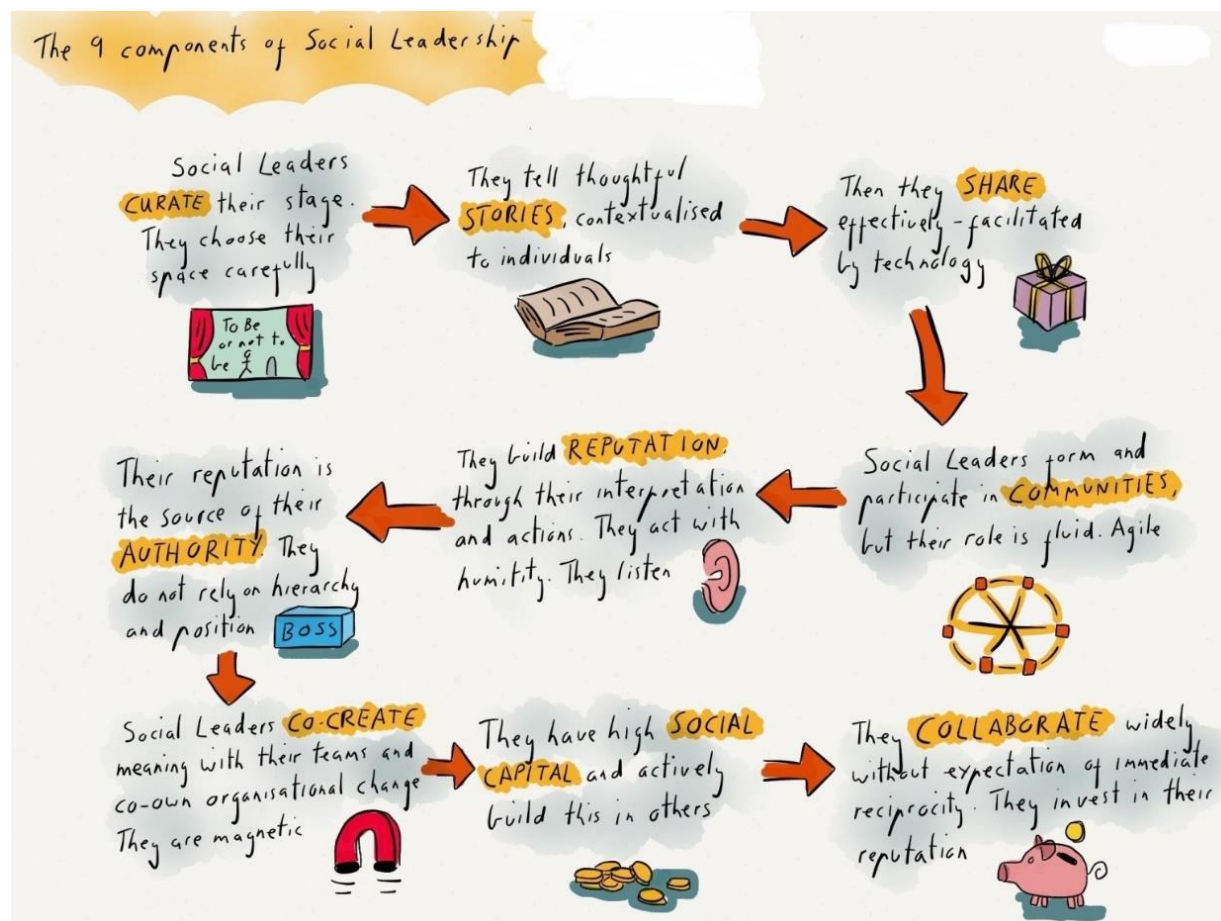 The 9 components of Social Leadership
Social Leaders
CURATE their stage.
They choose their
space carefully
To Be
or not to
be
They tell thoughtful
STORIES, contextualised
to individuals
Then they SHARE
effectively - facilitated
by technology
Social Leaders form and
participate in COMMUNITIES,
but their role is fluid. Agile
They build REPUTATION
through their interpretation
and actions. They act with
humitity. They listen
Their reputation is
the source of their
AUTHORITY. They
do not rely on hierarchy
and position
BOSS
Social Leaders CO-CREATE
meaning with their teams and
co-own organisational change
They are magnetic
They have high SOCIAL
CAPITAL and actively
build this in others
They COLLABORATE widely
without expectation of immediate
reciprocity. They invest in their
reputation